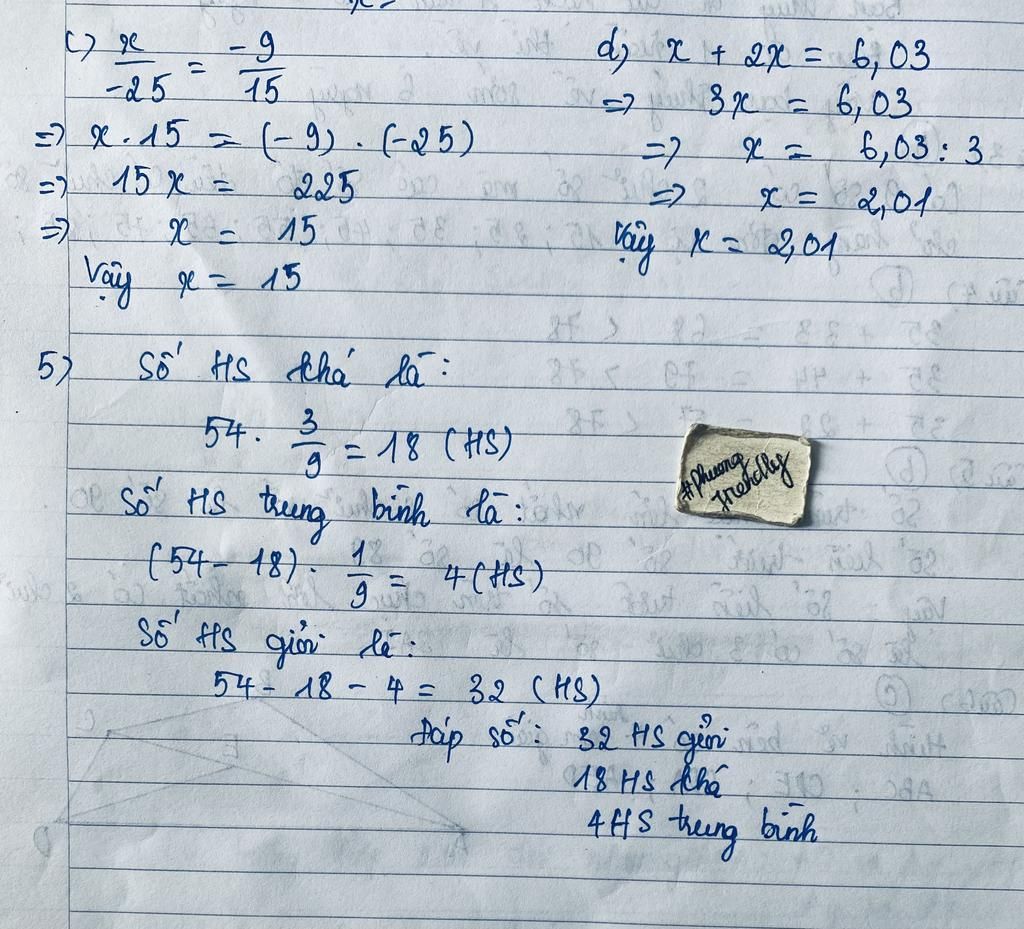 c) x/-25 = -9/15
=> x . 15 = (-9) . (-25)
=> 15x = 225
=> x = 15
Vậy x = 15
d, x + 2x = 6,03
=> 3x = 6,03
=> x = 6,03 : 3
=> x = 2,01
Vậy x = 2,01
5) Số HS khá là:
54 . 3/9 = 18 (HS)
Số HS trung bình là:
(54 - 18) . 1/9 = 4 (HS)
Số HS giỏi là:
54 - 18 - 4 = 32 (HS)
Đáp số: 32 HS giỏi
18 HS khá
4 HS trung bình
#phuong